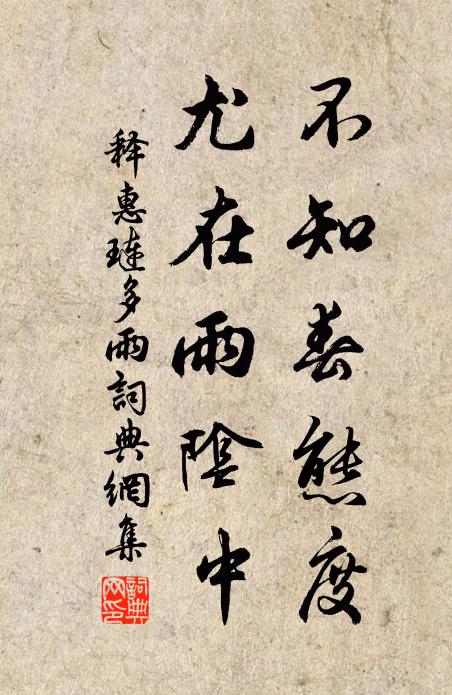 不知春態度
尤在雨陰中
释惠璉多雨詞典網集
詞典网印